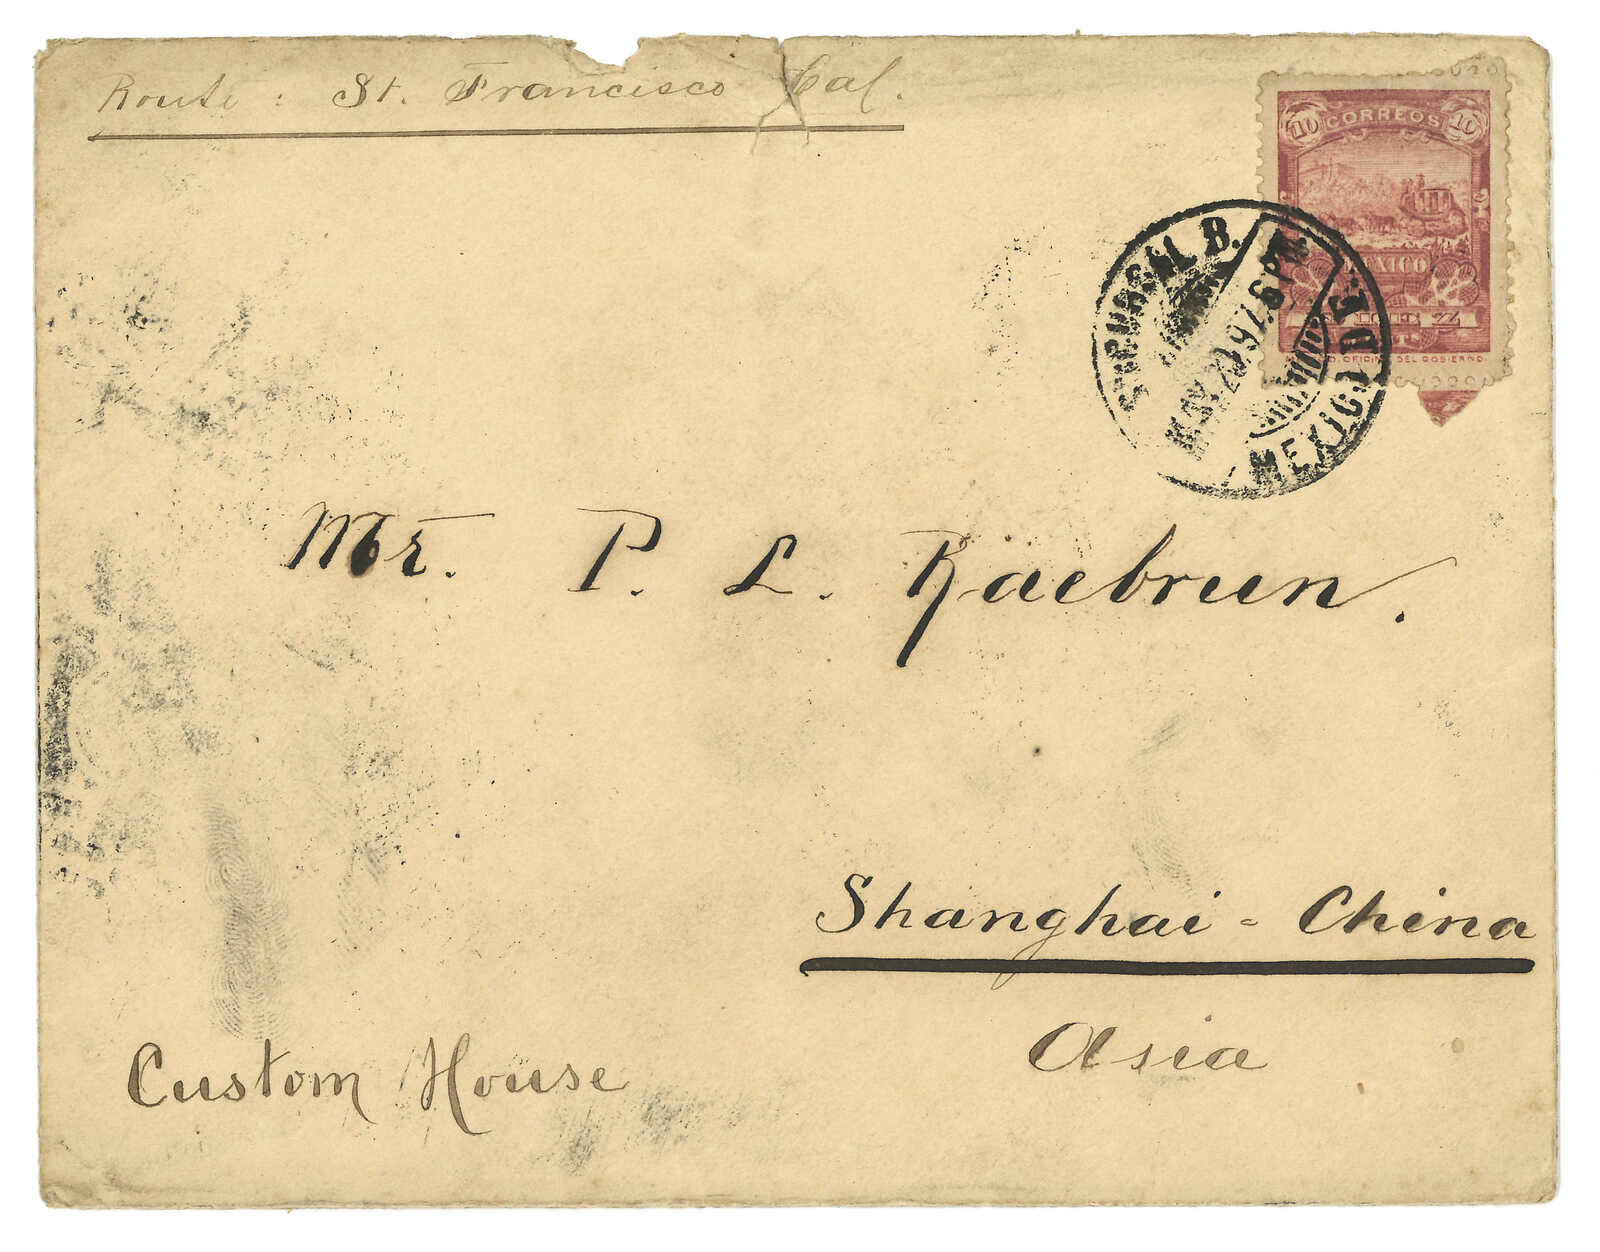 Route : St. Francisco Cal.
10 CORREOS 10
MEXICO
DIEZ
SUCURSAL B.
MAY. 20. 97. 6 P.M.
MEXICO D.F.
OFICINA DEL GOBIERNO.
Mr. P. L. Raebrun.
Shanghai = China
Asia
Custom House